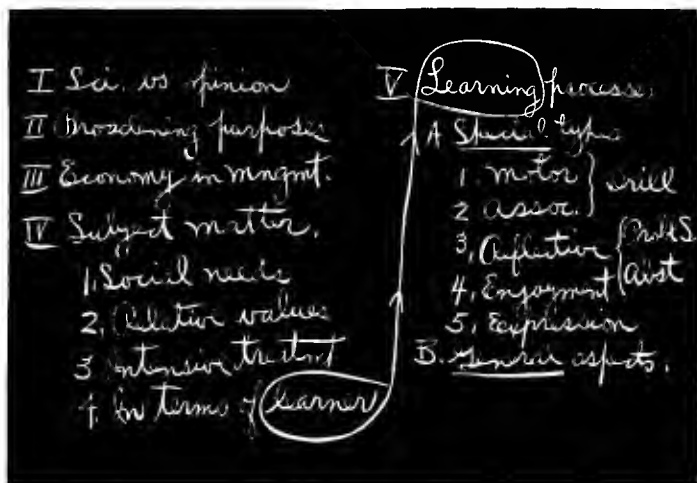 I Sci. vs opinion
II Broadening purposes
III Economy in mngmt.
IV Subject matter.
1. Social needs
2. Relative values
3 Intensive treatmt
4. In terms of learner
V Learning processes
A Special types
1. motor
2 assoc. } drill
3. Reflective
4. Enjoyment
5. Expression
B. General aspects.